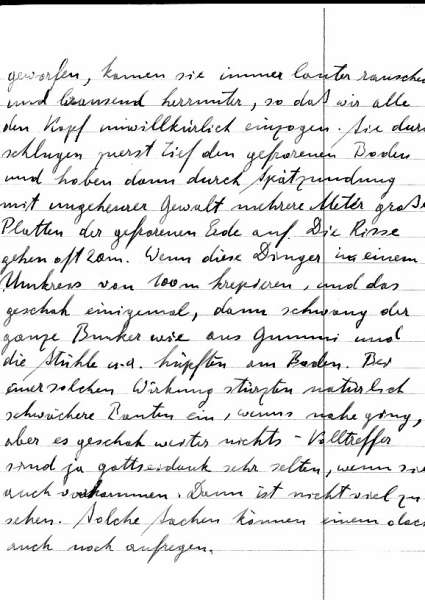 geworfen, kamen sie immer lauter rauschen
und brausend herrunter, so daß wir alle
den Kopf unwillkürlich einzogen. Sie durch
schlugen zuerst tief den gefrorenen Boden
und hoben dann durch Spätzündung
mit ungeheurer Gewalt mehrere Meter große
Platten der gefrorenen Erde auf. Die Risse
gehen oft 20m. Wenn diese Dinger in einem
Umkreis von 100m krepieren, und das
geschah einigemal, dann schwang der
ganze Bunker wie aus Gummi und
die Stühle u.a. hüpften am Boden. Bei
einer solchen Wirkung stürzten natürlich
schwächere Bauten ein, wenns nahe ging,
aber es geschah weiter nichts - Volltreffer
sind ja gottseidank sehr selten, wenn sie
auch vorkommen. Dann ist nicht viel zu
sehen. Solche Sachen können einem doch
auch noch aufregen.